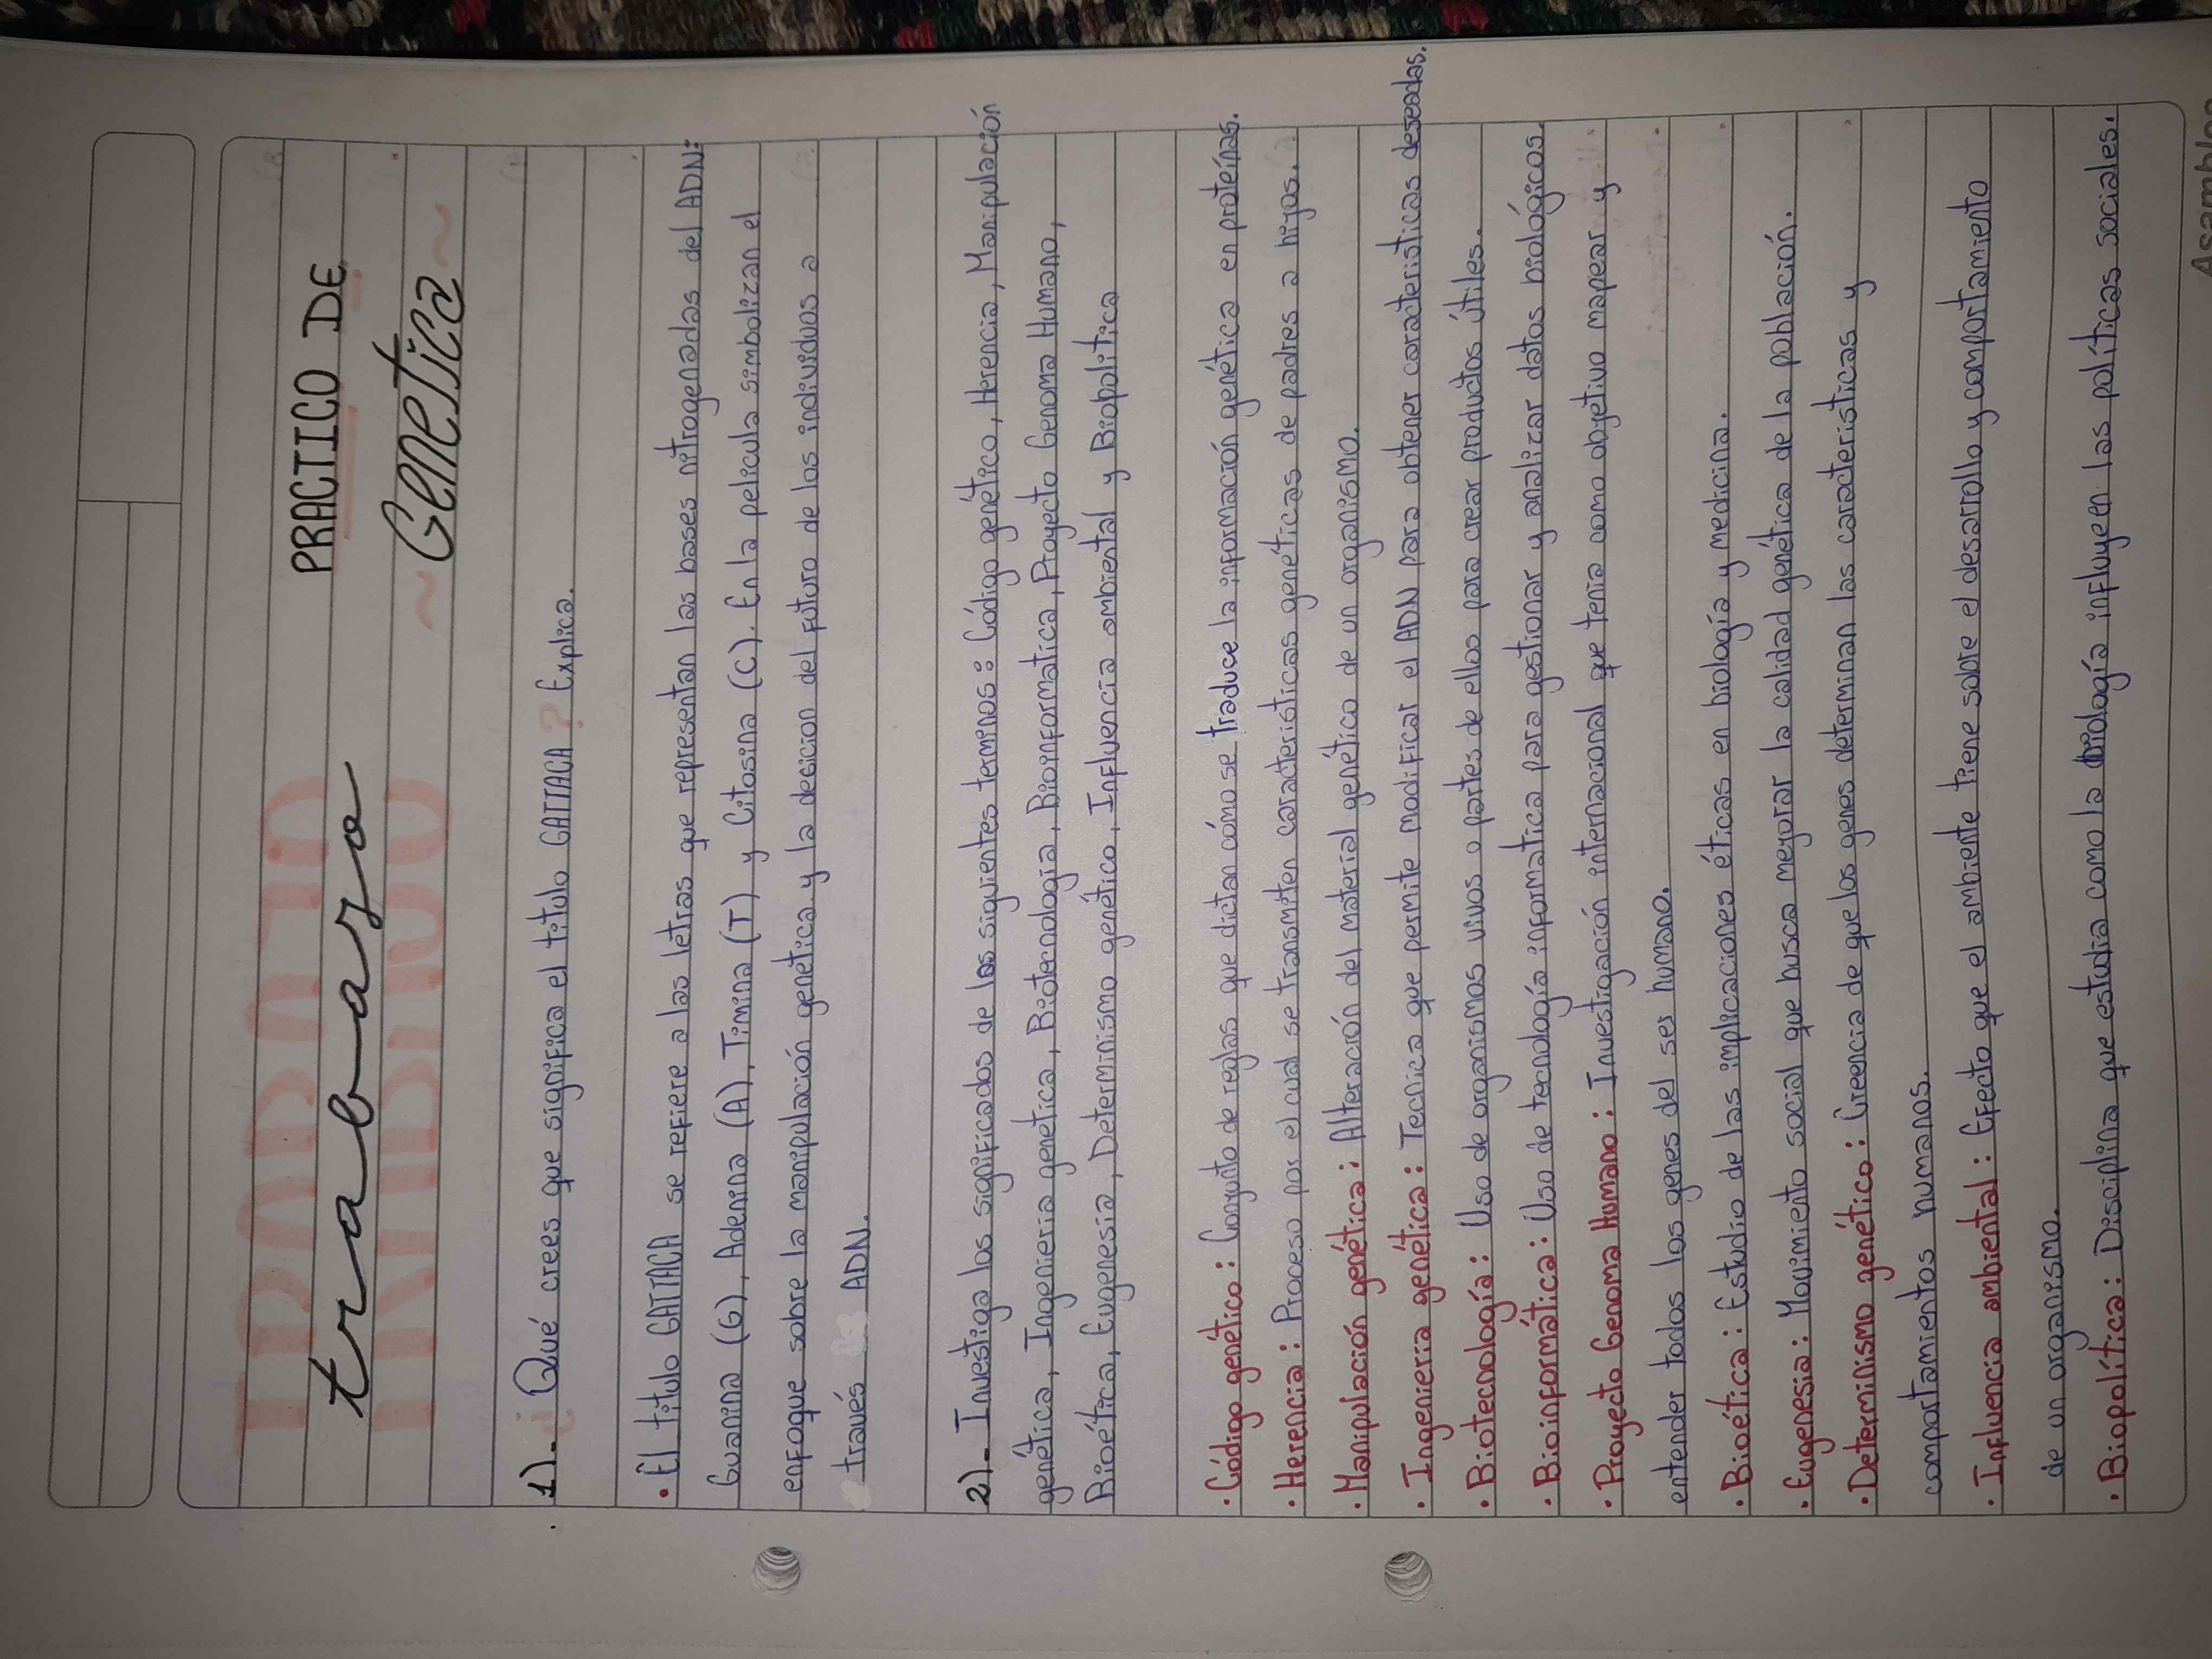 trabajo PRACTICO DE
~ Genetica ~
1).- ¿Qué crees que significa el titulo GATTACA? Explica.
• El titulo GATTACA se refiere a las letras que representan las bases nitrogenadas del ADN:
Guanina (G), Adenina (A), Timina (T) y Citosina (C). En la pelicula simbolizan el
enfoque sobre la manipulación genética y la decicion del futuro de los individuos a
través ADN.
2).- Investiga los significados de los siguientes terminos: Código genético, Herencia, Manipulación
genética, Ingenieria genética, Biotecnología, Bioinformatica, Proyecto Genoma Humano,
Bioética, Eugenesia, Determinismo genético, Influencia ambiental y Biopolitica
• Código genético: Conjunto de reglas que dictan cómo se traduce la información genética en proteínas.
• Herencia: Proceso por el cual se transmiten caracteristicas genéticas de padres a hijos.
• Manipulación genética: Alteración del material genético de un organismo.
• Ingenieria genética: Tecnica que permite modificar el ADN para obtener caracteristicas deseadas.
• Biotecnología: Uso de organismos vivos o partes de ellos para crear productos útiles.
• Bioinformática: Uso de tecnología informatica para gestionar y analizar datos biológicos.
• Proyecto Genoma Humano: Investigación internacional que tenia como objetivo mapear y
entender todos los genes del ser humano.
• Bioética: Estudio de las implicaciones éticas en biología y medicina.
• Eugenesia: Movimiento social que busca mejorar la calidad genética de la población.
• Determinismo genético: Creencia de que los genes determinan las caracteristicas y
comportamientos humanos.
• Influencia ambiental: Efecto que el ambiente tiene sobre el desarrollo y comportamiento
de un organismo.
• Biopolítica: Disciplina que estudia como la biología influye en las políticas sociales.